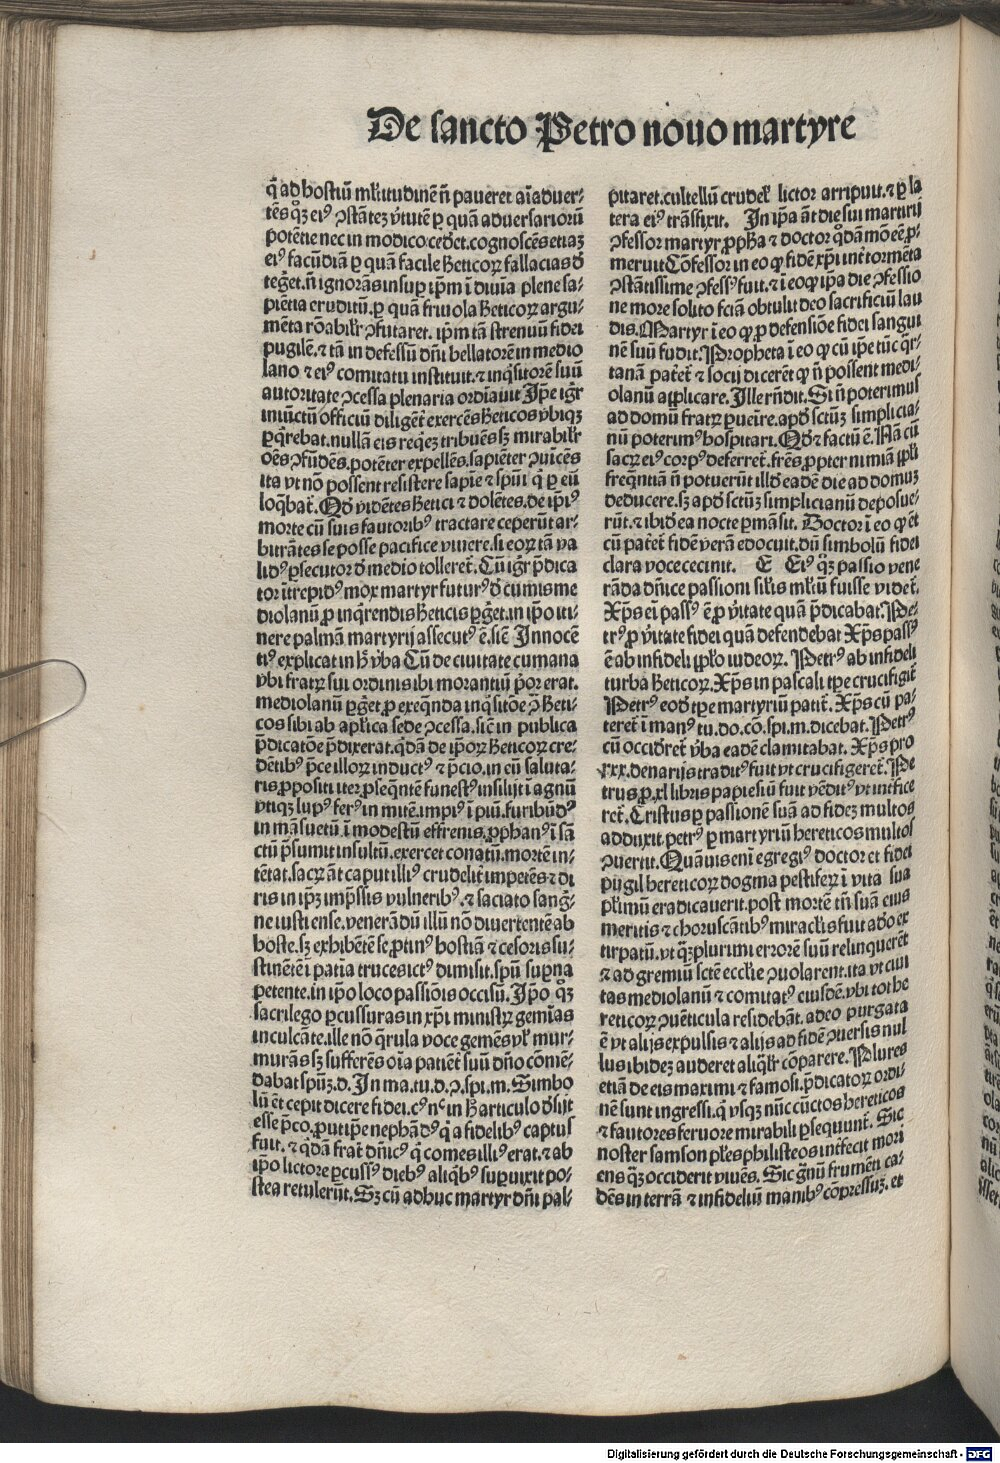 De sancto Petro nouo martyre
q̄ ad hostiū ml̄titudinē n̄ paueret aīaduer-
tēs qꝫ eiꝰ ꝯstātez v̓tutē ꝑ quā aduersarioꝝ
potētie nec in modico ced̓et. cognoscēs etiaꝫ
eiꝰ facūdiā ꝑ quā facile h̓eticoꝝ fallacias d̓
teg̓et. n̄ ignorās insuꝑ ip̄m ī diuīa plene sa-
piētia eruditū. ꝑ quā friuola h̓eticoꝝ argu-
mēta rōabilr̄ ꝯfutaret. ip̄m tā strenuū fidei
pugilē. ⁊ tā in defessū dn̄i bellatorē in medio
lano ⁊ eiꝰ comitatu instituit. ⁊ inq̄sitorē suū
autoritate ꝯcessa plenaria ordīauit Ip̄e igr̄
iniūctū officiū diligēt̓ exercēs h̓eticos vbiqꝫ
ꝑq̄rebat. nullā eis reqeꝫ tribuēs sꝫ mirabilr̄
oēs ꝯfūdēs. potēter expellēs. sapiēter ꝯuicēs
ita vt nō possent resistere sapie ⁊ spūi q̄ ꝑ eū
loq̄bat̓. Qd̓ vidētes h̓etici ⁊ dolētes. de ip̄iꝰ
morte cū suis fautoribꝰ tractare ceperūt ar-
bitrātes se posse pacifice viuere. si eoꝝ tā va
lidꝰ ꝑsecutor d̓ medio tolleret̓. Cū igr̄ p̄dica
tor ītrepidꝰ mox martyr futurꝰ d̓ cumis me
diolanū ꝓ inq̄rendis h̓eticis ꝑg̓et. in ip̄o iti-
nere palmā martyrij assecutꝰ ē. sic̄ Innocē
tiꝰ explicat in h̓ v̓ba Cū de ciuitate cumana
vbi fratꝝ sui ordinis ibi morantiū p̓or erat.
mediolanū ꝑg̓et. ꝓ exeq̄nda inq̄sitōe ꝯ h̓eti-
cos sibi ab apl̄ica sede ꝯcessa. sic̄ in publica
p̄dicatōe p̄dixerat. q̄dā de ip̄oꝝ h̓eticoꝝ cre-
dētibꝰ p̄ce illoꝝ inductꝰ ⁊ p̄cio. in eū saluta-
ris ꝓpositi iter ꝓseq̄ntē funestꝰ insilijt ī agnū
vtiqꝫ lupꝰ ferꝰ in mitē. impiꝰ ī piū. furibūdꝰ
in māsuetū. ī modestū effrenis. ꝓphanꝰ ī sā
ctū p̄sumit insultū. exercet conatū. mortē in-
tētat. sacꝝ āt caput illiꝰ crudelit̓ impetēs ⁊ di
ris in ip̄ꝫ imp̄ssis vulneribꝰ. ⁊ saciato sang̓-
ne iusti ense. venerādū illū nō diuertentē ab
hoste. sꝫ exhibētē se ꝓtinꝰ hostiā ⁊ cesoris su-
stinētē ī patīa truces ictꝰ dimisit. spū suꝑna
petente. in ip̄o loco passiōis occisū. Ip̄o qꝫ
sacrilego ꝑcussuras in xp̄i ministꝝ gemīas
inculcāte. ille nō q̄rula voce gemēs vl̓ mur-
murās sꝫ sufferēs oīa patiēt̓ suū dn̄o cōmē-
dabat spūꝫ. d. In ma. tu. d. ꝯ. spi. m. Simbo
lū ēt cepit dicere fidei. cꝰ nᶜ in h̓ articulo d̓sijt
esse p̄co. ꝓut ip̄e nephādꝰ q̄ a fidelibꝰ captuſ
fuit. ⁊ q̄dā frat̓ dn̄icꝰ q̄ comes illiꝰ erat. ⁊ ab
ip̄o lictore ꝑcussꝰ diebꝰ aliq̄bꝰ suꝑuixit po-
stea retulerūt. Sꝫ cū adhuc martyr dn̄i pal-
pitaret. cultellū crudel̓ lictor arripuit. ⁊ ꝑ la
tera eiꝰ trāsfixit. In ip̄a āt die sui martirij
ꝯfessor martyr ꝓph̄a ⁊ doctor q̄dā mō eē ꝓ-
meruit Cōfessor in eo qꝙ fidē xp̄i int̓ tormēta
ꝯstātissime ꝯfessꝰ fuit. ⁊ ī eo qꝙ ip̄a die ꝯfessio
ne more solito fc̄iā obtulit deo sacrificiū lau
dis. Martyr ī eo qꝙ ꝓ defensiōe fidei sangui
nē suū fudit. Propheta ī eo qꝙ cū ip̄e tūc q̄r-
tanā pat̓et̓ ⁊ socij dicerēt qꝙ n̄ possent medi-
olanū applicare. Ille rn̄dit. Si n̄ poterimus
ad domū fratꝝ ꝑueīre. apd̓ sctūꝫ simplicia-
nū poterimꝰ hospitari. Qd̓ ⁊ factū ē. Nā cū
sacꝝ eiꝰ corpꝰ deferret̓. frēs ꝓpter nimiā ppl̄i
freq̄ntiā n̄ potuerūt illd̓ eadē die ad domuꝫ
deducere. sꝫ apd̓ sctūꝫ simplicianū deposue-
rūt. ⁊ ibid̓ ea nocte ꝑmāsit. Doctor ī eo qꝙ ēt
cū pat̓et̓ fidē verā edocuit. dū simbolū fidei
clara voce cecinit. E Eiꝰ qꝫ passio vene
rāda dn̄ice passioni sil̓is ml̄tū fuisse videt̓.
Xp̄s ei passꝰ ē ꝓ v̓itate quā p̄dicabat. Pe-
trꝰ ꝓ v̓itate fidei quā defendebat Xp̄s passꝰ
ē ab infideli ppl̄o iudeoꝝ. Petrꝰ ab infideli
turba h̓eticoꝝ. Xp̄s in pascali tp̄e crucifigit̓
Petrꝰ eod̓ tp̄e martyriū patit̓. Xp̄s cū pa-
teret̓ ī manꝰ tu. do. cō. spi. m. dicebat. Petrꝰ
cū occid̓ret̓ v̓ba eadē clamitabat. Xp̄s pro
xxx. denarijs traditꝰ fuit vt crucifigeret̓. Pe
trus ꝓ xl libris papiesiū fuit vēditꝰ vt int̓fice
ret̓. Cristus ꝑ passionē suā ad fideꝫ multos
adduxit. petrꝰ ꝑ martyriū hereticos multoſ
ꝯuertit. Quāuis eni egregiꝰ doctor et fidei
pugil hereticoꝝ dogma pestiferꝝ ī vita sua
pl̓imū eradicauerit. post mortē tn̄ suā eius
meritis ⁊ choruscātibꝰ miracl̄is fuit adeo ex
tirpatū. vt qꝫplurimi errorē suū relinquerēt
⁊ ad gremiū sctē ecclīe ꝯuolarent. ita vt ciui
tas mediolanū ⁊ comitatꝰ eiusdē. vbi tot he
reticoꝝ ꝯuēticula residebāt. adeo purgata
ē vt alijs expulsis ⁊ alijs ad fidē ꝯuersis nul
lus ibideꝫ auderet aliq̄lr̄ cōparere. Plures
etiā de eis maximi ⁊ famosi. p̄dicatoꝝ ordi-
nē sunt ingressi. q̄ vsqꝫ nūc cūctos hereticos
⁊ fautores feruore mirabili ꝑsequunt̓. Sic
noster samson pl̓es philisteos int̓fecit mori
ens qꝫ occiderit viuēs. Sic g̓nū frumēti ca-
dēs in terrā ⁊ infideliū manibꝰ cōpressuꝫ. et
Digitalisierung gefördert durch die Deutsche Forschungsgemeinschaft - DFG